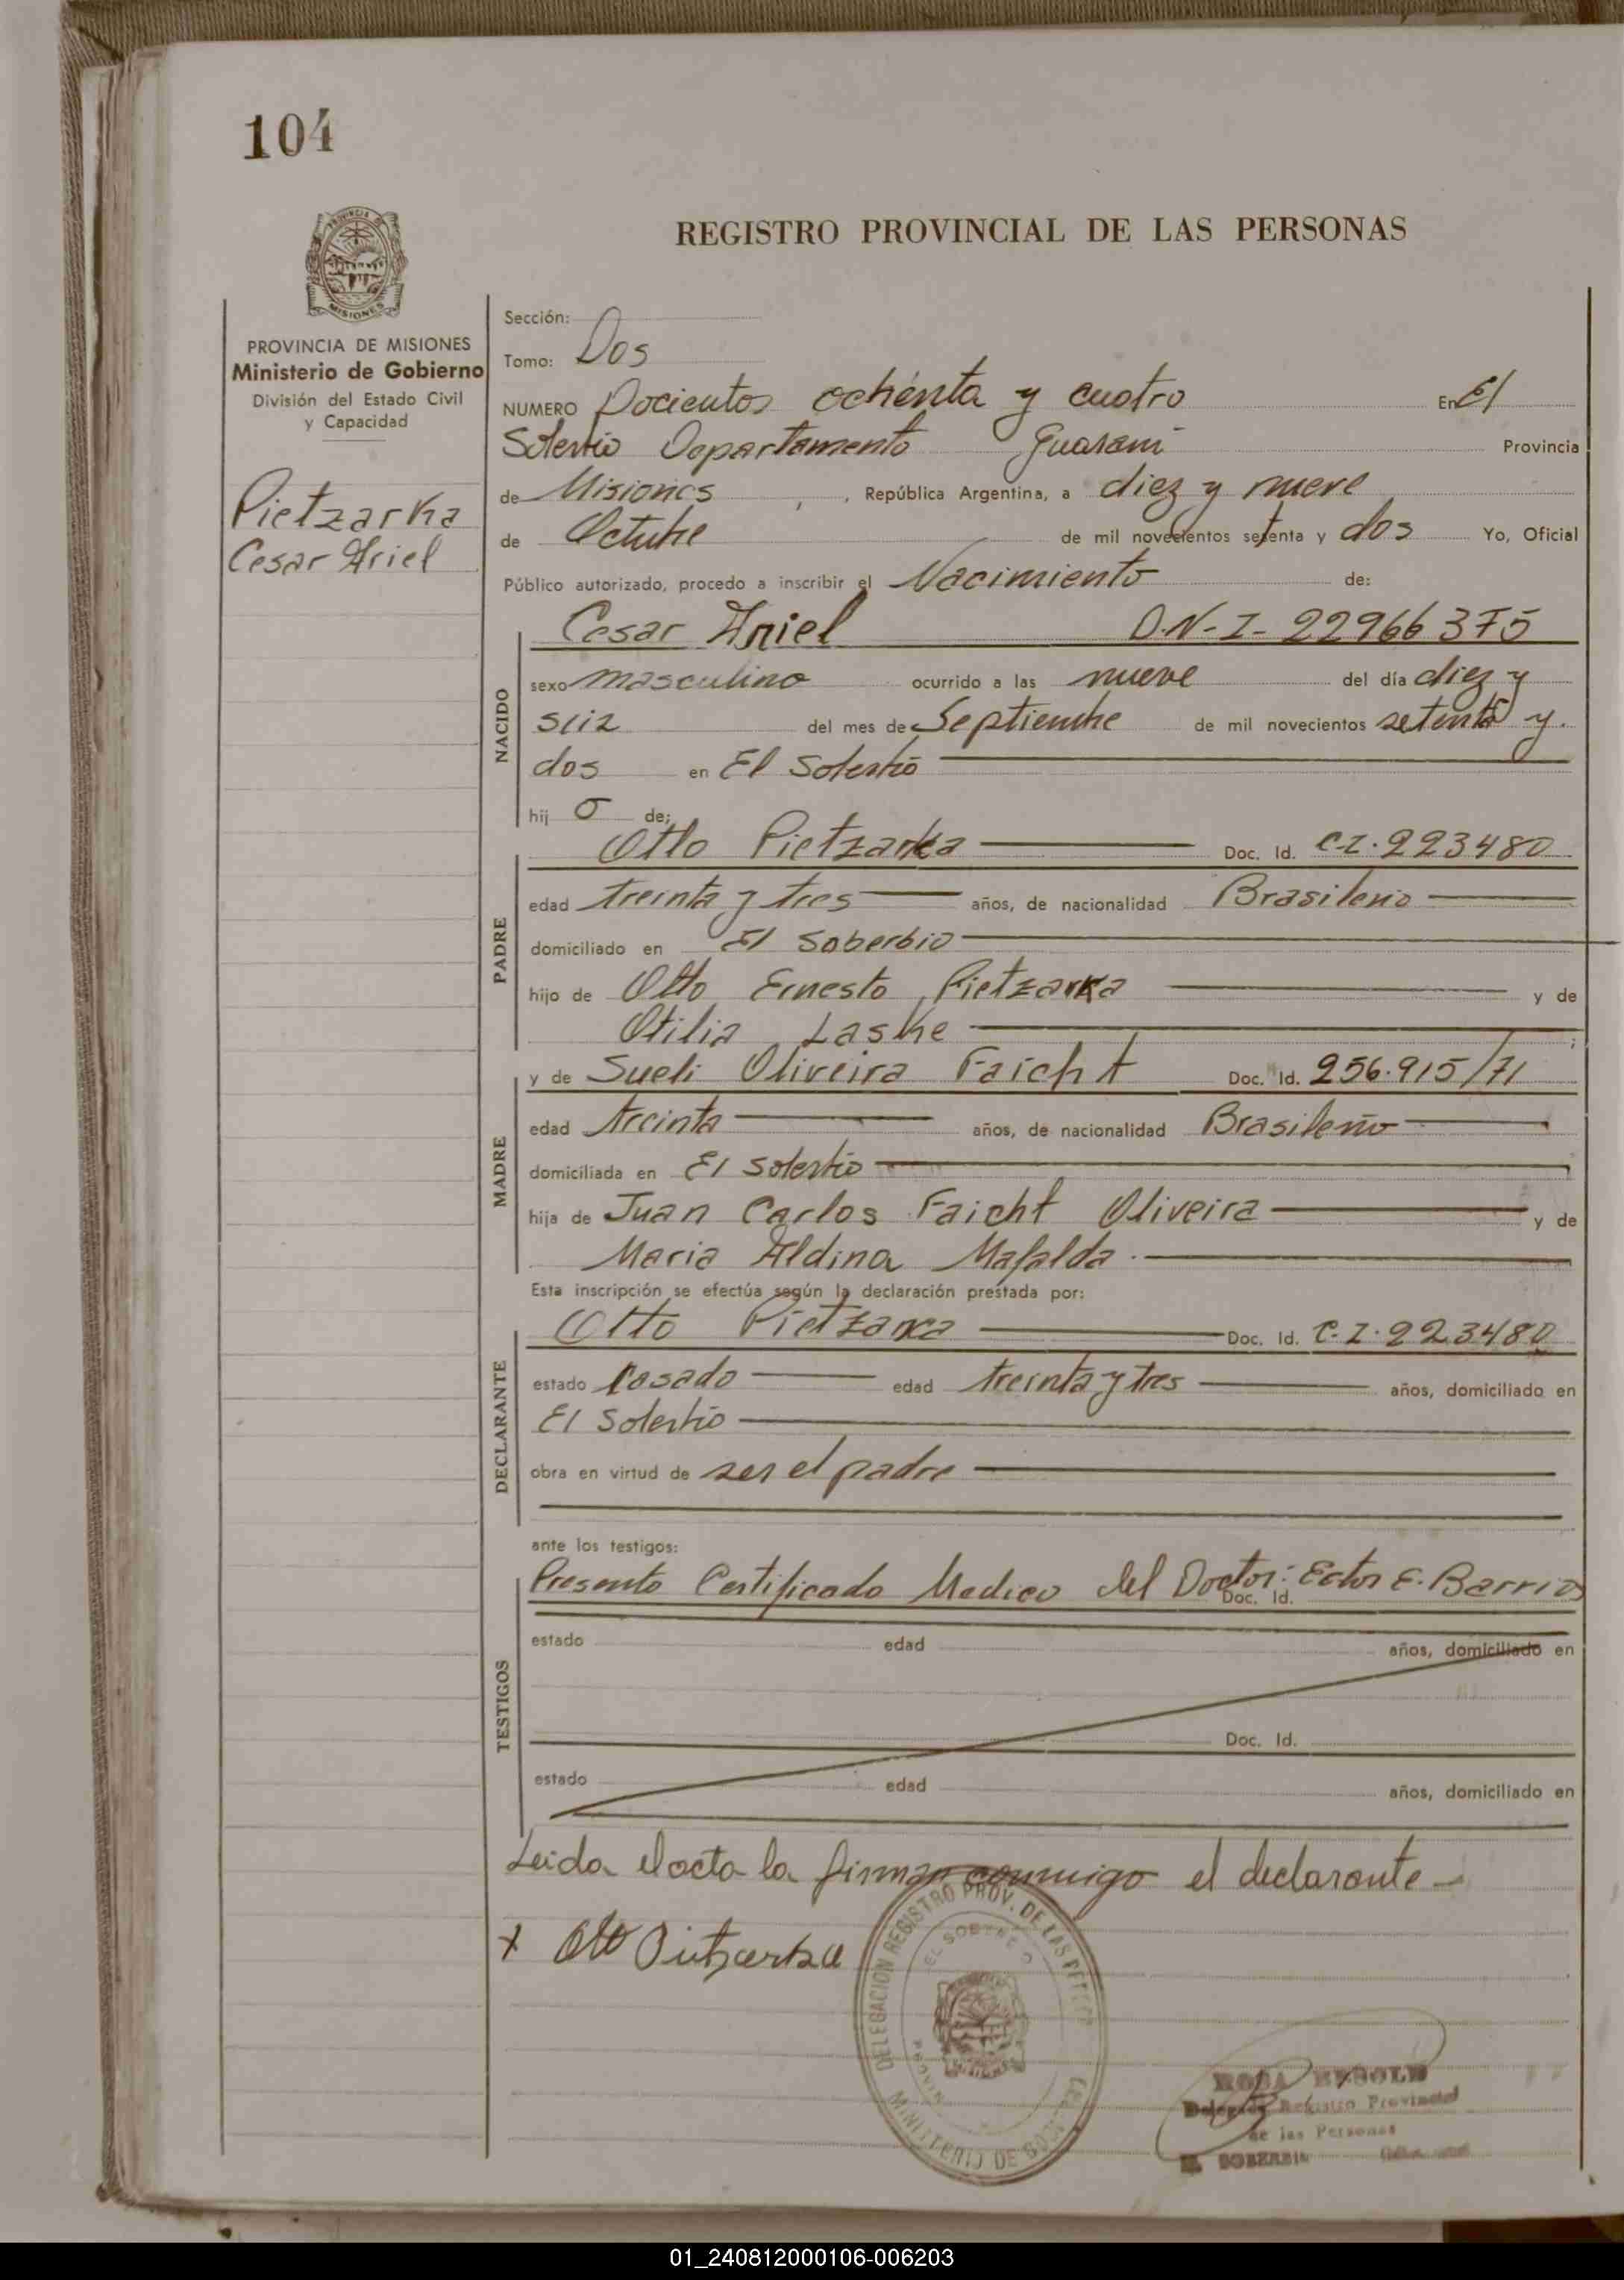 104
PROVINCIA DE MISIONES
REGISTRO PROVINCIAL DE LAS PERSONAS
PROVINCIA DE MISIONES
Ministerio de Gobierno
División del Estado Civil
y Capacidad
Pietzarka
Cesar Ariel
Sección:
Tomo: Dos
NUMERO Docientos ochenta y cuatro En El
Soberbio Departamento Guarani Provincia
de Misiones, República Argentina, a diez y nueve
de Octubre de mil novecientos setenta y dos Yo, Oficial
Público autorizado, procedo a inscribir el Nacimiento de:
NACIDO
Cesar Ariel D.N-I- 22966375
sexo masculino ocurrido a las nueve del día diez y
seiz del mes de Septiembre de mil novecientos setenta y
dos en El Soberbio
hij o de;
PADRE
Otto Pietzarka Doc. Id. C-I.223480
edad treinta y tres años, de nacionalidad Brasileño
domiciliado en El Soberbio
hijo de Otto Ernesto Pietzarka y de
Otilia Laske ;
MADRE
y de Sueli Oliveira Faicht Doc. Id. 256.915/71
edad treinta años, de nacionalidad Brasileño
domiciliada en El Soberbio
hija de Juan Carlos Faicht Oliveira y de
Maria Aldina Mafalda.
Esta inscripción se efectúa según la declaración prestada por:
DECLARANTE
Otto Pietzarka Doc. Id. C-I.223480
estado Casado edad treinta y tres años, domiciliado en
El Soberbio
obra en virtud de ser el padre
ante los testigos:
TESTIGOS
Presento Certificado Medico del Doctor: Ector E. Barrios
Doc. Id.
estado edad años, domiciliado en
Doc. Id.
estado edad años, domiciliado en
Leida el acta la firman conmigo el declarante
x Otto Pietzarka
DELEGACION REGISTRO PROV. DE LAS PERSO
EL SOBERBIO
MINISTERIO DE GOB
ROSA
Delegada Registro Provincial
de las Personas
EL SOBERBIO
01_240812000106-006203